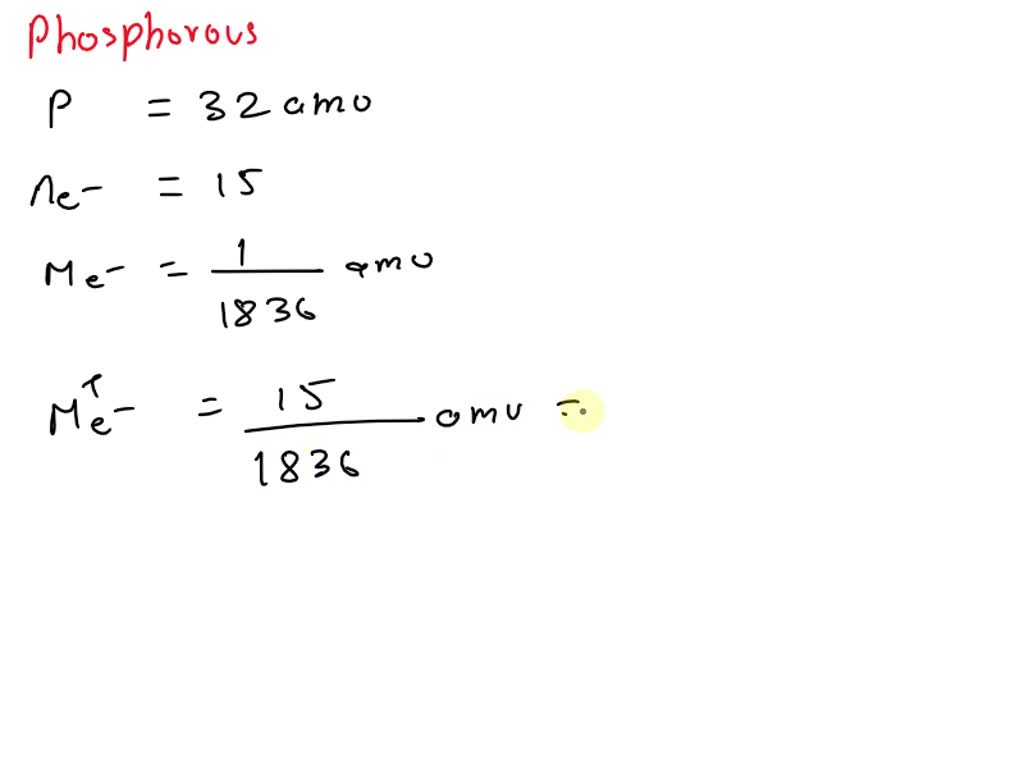 Phosphorous
P = 32 amu
ne- = 15
Me- = 1/1836 amu
M^T e- = 15/1836 amu =